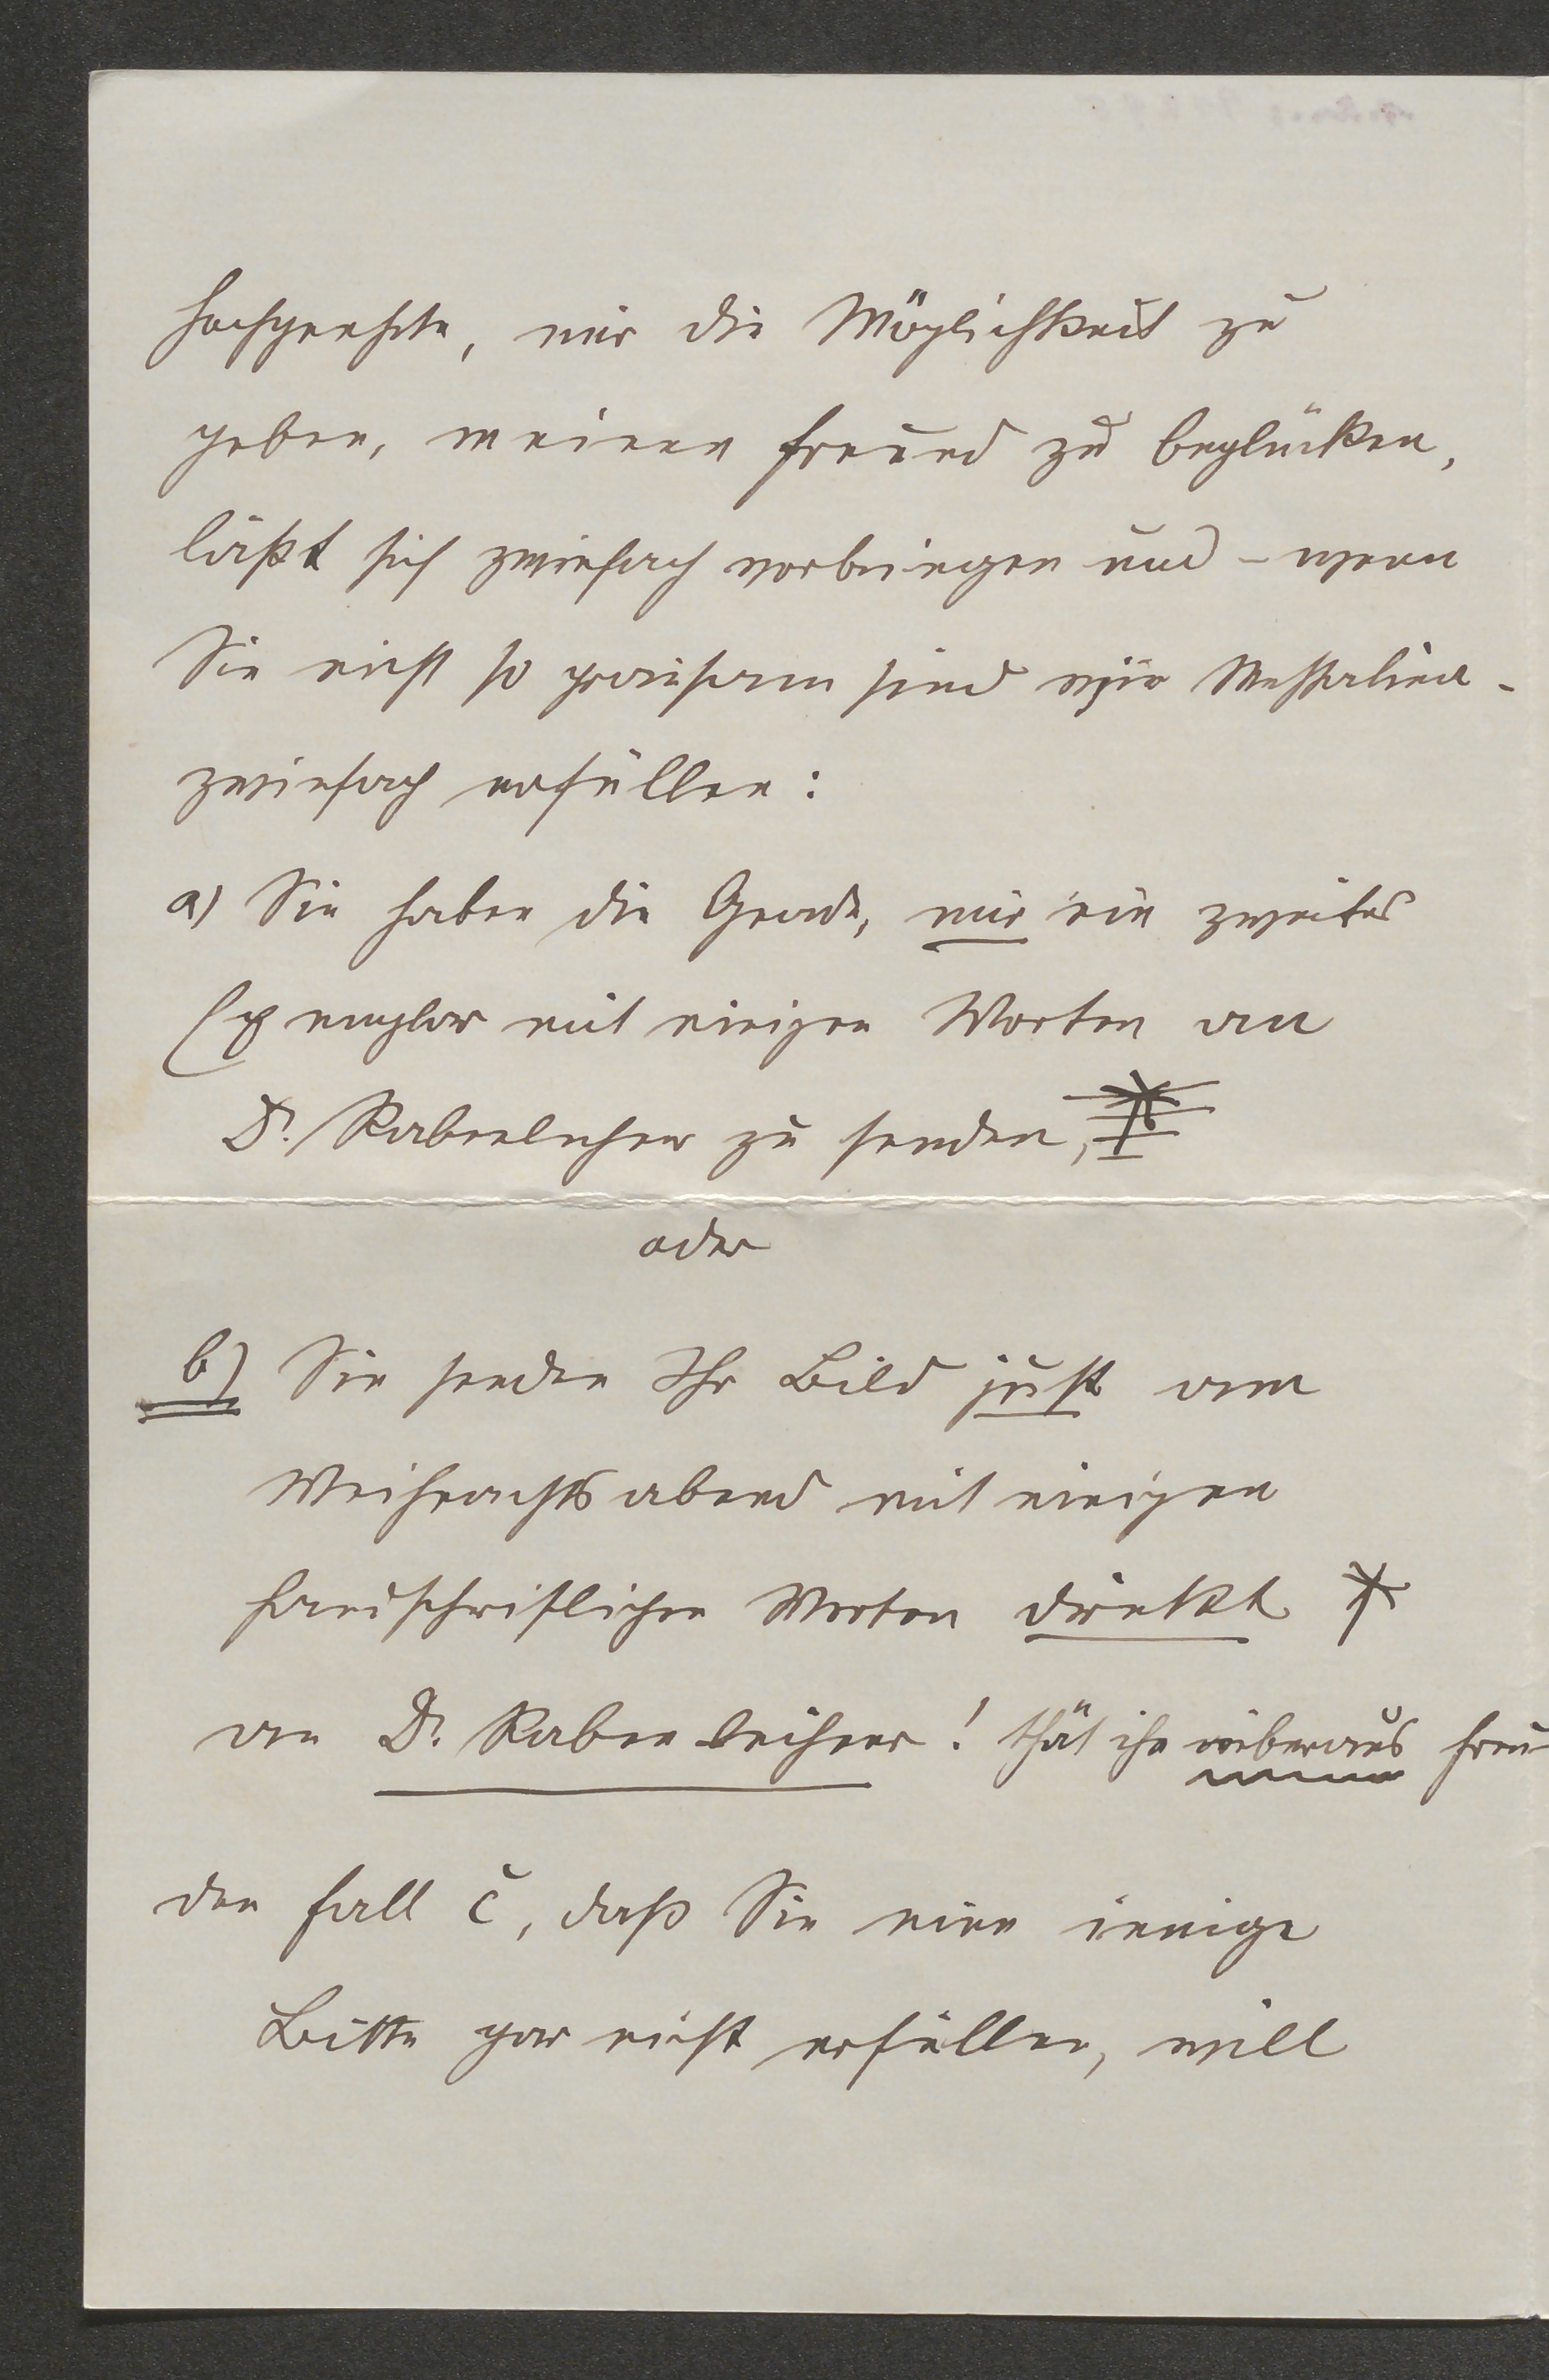 hochgeehrte, mir die Möglichkeit zu
geben, meinen Freund zu beglücken,
läßt sich zwiefach vorbringen und – wenn
Sie nicht so grausam sind wie Messalina –
zwiefach erfüllen:
a) Sie haben die Gnade, mir ein zweites
Exemplar mit einigen Worten an
Dr. Rabenlechner zu senden,
oder
b) Sie senden Ihr Bild just am
Weihnachtsabend mit einigen
handschriftlichen Worten direkt *
an Dr. Rabenlechner! thät ihn überaus freu-
den Fall c, daß Sie eine innige
Bitte gar nicht erfüllen, will